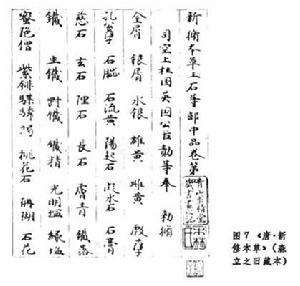 新脩本草玉石等部中品卷第
司空上柱國英國公臣勣等奉 勅脩
金屑 銀屑 水銀 雄黃 雌黃 殷孽
孔公孽 石腦 石流黃 陽起石 凝水石 石膏
慈石 玄石 理石 長石 膚青 鐵落
鐵 生鐵 鋼鐵 鐵精 光明鹽 綠鹽
密陀僧 紫鉚騏驎竭 桃花石 珊瑚 石花
图7 《唐·新
修本草》(森
立之旧藏本)